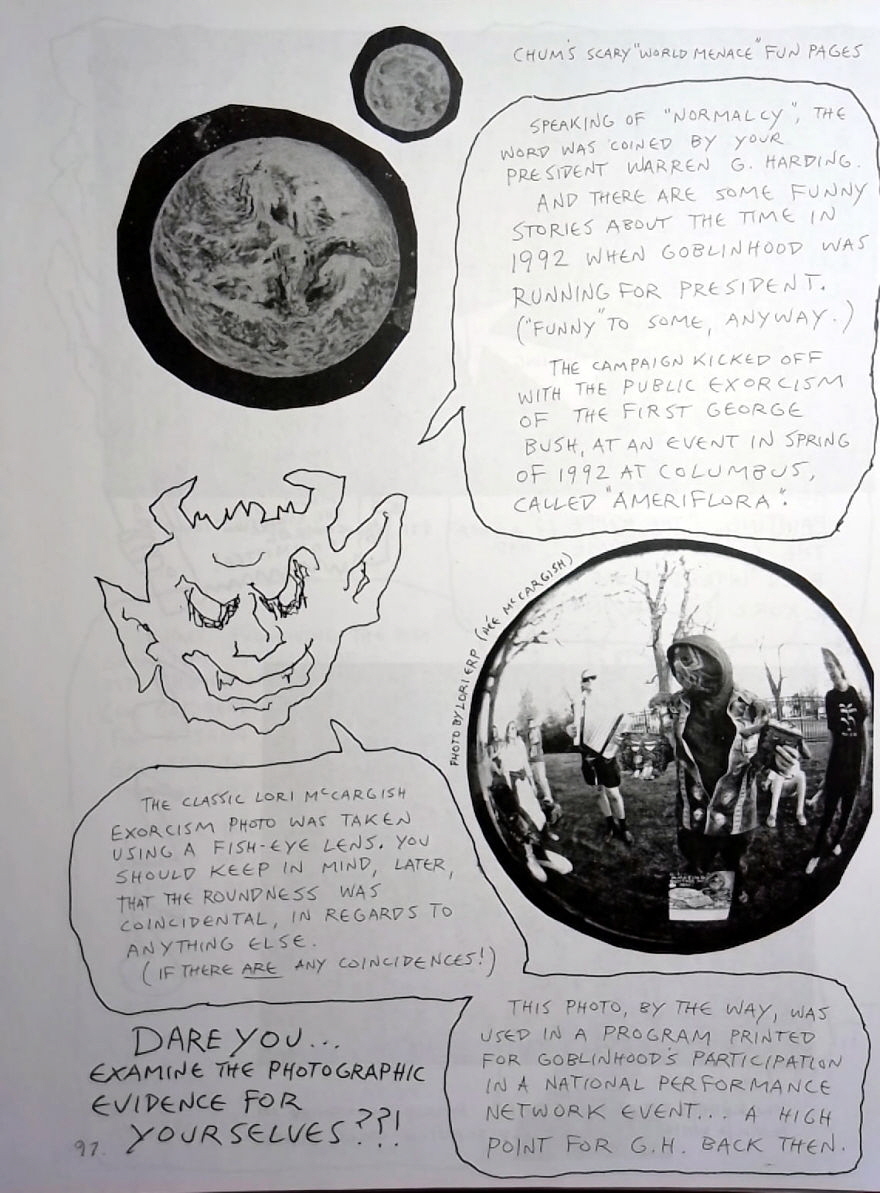 CHUM'S SCARY "WORLD MENACE" FUN PAGES
SPEAKING OF "NORMALCY", THE
WORD WAS COINED BY YOUR
PRESIDENT WARREN G. HARDING.
AND THERE ARE SOME FUNNY
STORIES ABOUT THE TIME IN
1992 WHEN GOBLINHOOD WAS
RUNNING FOR PRESIDENT.
("FUNNY" TO SOME, ANYWAY.)
THE CAMPAIGN KICKED OFF
WITH THE PUBLIC EXORCISM
OF THE FIRST GEORGE
BUSH, AT AN EVENT IN SPRING
OF 1992 AT COLUMBUS,
CALLED "AMERIFLORA".
PHOTO BY LORI ERP (NÉE MCCARGISH)
THE CLASSIC LORI MCCARGISH
EXORCISM PHOTO WAS TAKEN
USING A FISH-EYE LENS. YOU
SHOULD KEEP IN MIND, LATER,
THAT THE ROUNDNESS WAS
COINCIDENTAL, IN REGARDS TO
ANYTHING ELSE.
(IF THERE ARE ANY COINCIDENCES!)
THIS PHOTO, BY THE WAY, WAS
USED IN A PROGRAM PRINTED
FOR GOBLINHOOD'S PARTICIPATION
IN A NATIONAL PERFORMANCE
NETWORK EVENT... A HIGH
POINT FOR G.H. BACK THEN.
DARE YOU...
EXAMINE THE PHOTOGRAPHIC
EVIDENCE FOR
YOURSELVES??!
97.